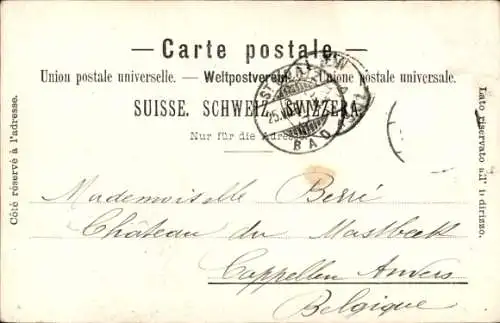 — Carte postale. —
Union postale universelle. — Weltpostverein. — Unione postale universale.
SUISSE. SCHWEIZ. SVIZZERA.
Nur für die Adresse.
Côté réservé à l'adresse.
Lato riservato all' indirizzo.
BAD
Mademoiselle Berré
Château du Mastbeek
Cappellen Anvers
Belgique